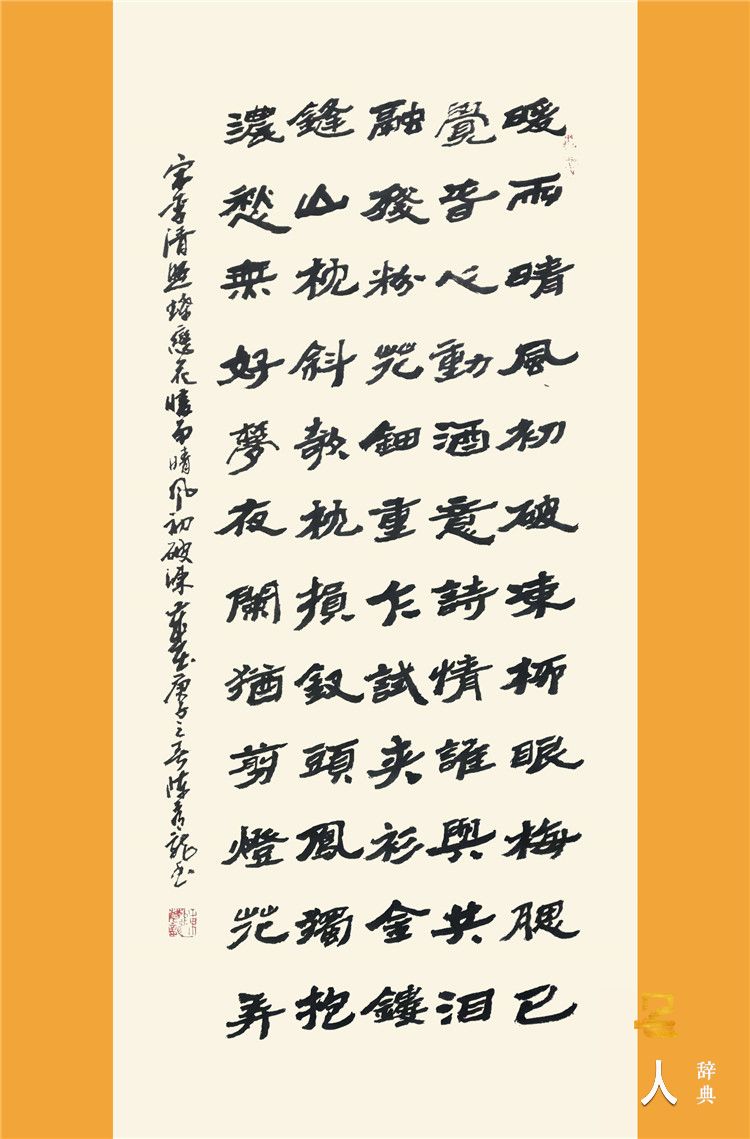 暖雨晴風初破凍柳眼梅腮已
覺旾心動酒意詩情誰與共泪
融殘粉花鈿重乍試夾衫金鏤
鏠山枕斜欹枕損釵頭鳳獨抱
濃愁無好夢夜闌猶剪燈花弄
宋李清照蝶戀花暖雨晴風初破凍歲在庚子之春陳龍書
名人
辞典